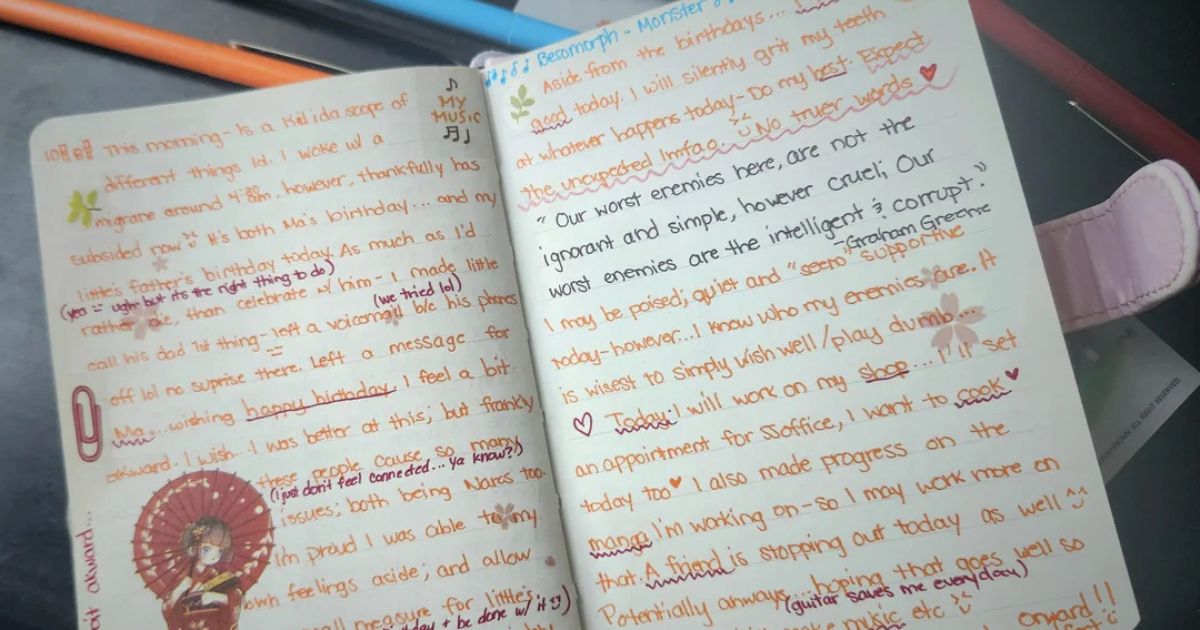 MY
MUSIC
This morning - Is a Kalidascope of
different things ld. I woke w/ a
migrane around 4:30am, however, thankfully has
subsided now It's both Ma's birthday... and my
little's father's birthday today. As much as I'd
(yea = ugh but its the right thing to do)
rather die, than celebrate w/ him - I made little
(we tried lol)
call his dad 1st thing - left a voicemail b/c his phones
off lol no suprise there. Left a message for
Ma... wishing happy birthday. I feel a bit
akward. I wish... I was better at this; but frankly
these people cause so many
(I just don't feel connected... ya know?!)
issues; both being Narcs too.
I'm proud I was able to my
own feelings aside; and allow
measure for little's
+ be done w/ it
akward...
Besomorph - Monster
Aside from the birthdays...
good today. I will silently grit my teeth
at whatever happens today - Do my best. Expect
the unexpected lmfao. No truer words
"Our worst enemies here, are not the
ignorant and simple, however cruel; Our
worst enemies are the intelligent & corrupt."
- Graham Greene
I may be poised; quiet and "seem" supportive
today - however... I know who my enemies are. It
is wisest to simply wish well/play dumb...
Today: I will work on my shop... I'll set
an appointment for SSoffice, I want to cook
today too I also made progress on the
manga I'm working on - so I may work more on
that. A friend is stopping out today as well ^^
Potentially anyways... hoping that goes well so
(guitar saves me everyday)
make music etc
onward!!
ALL RIGHT RESERVED